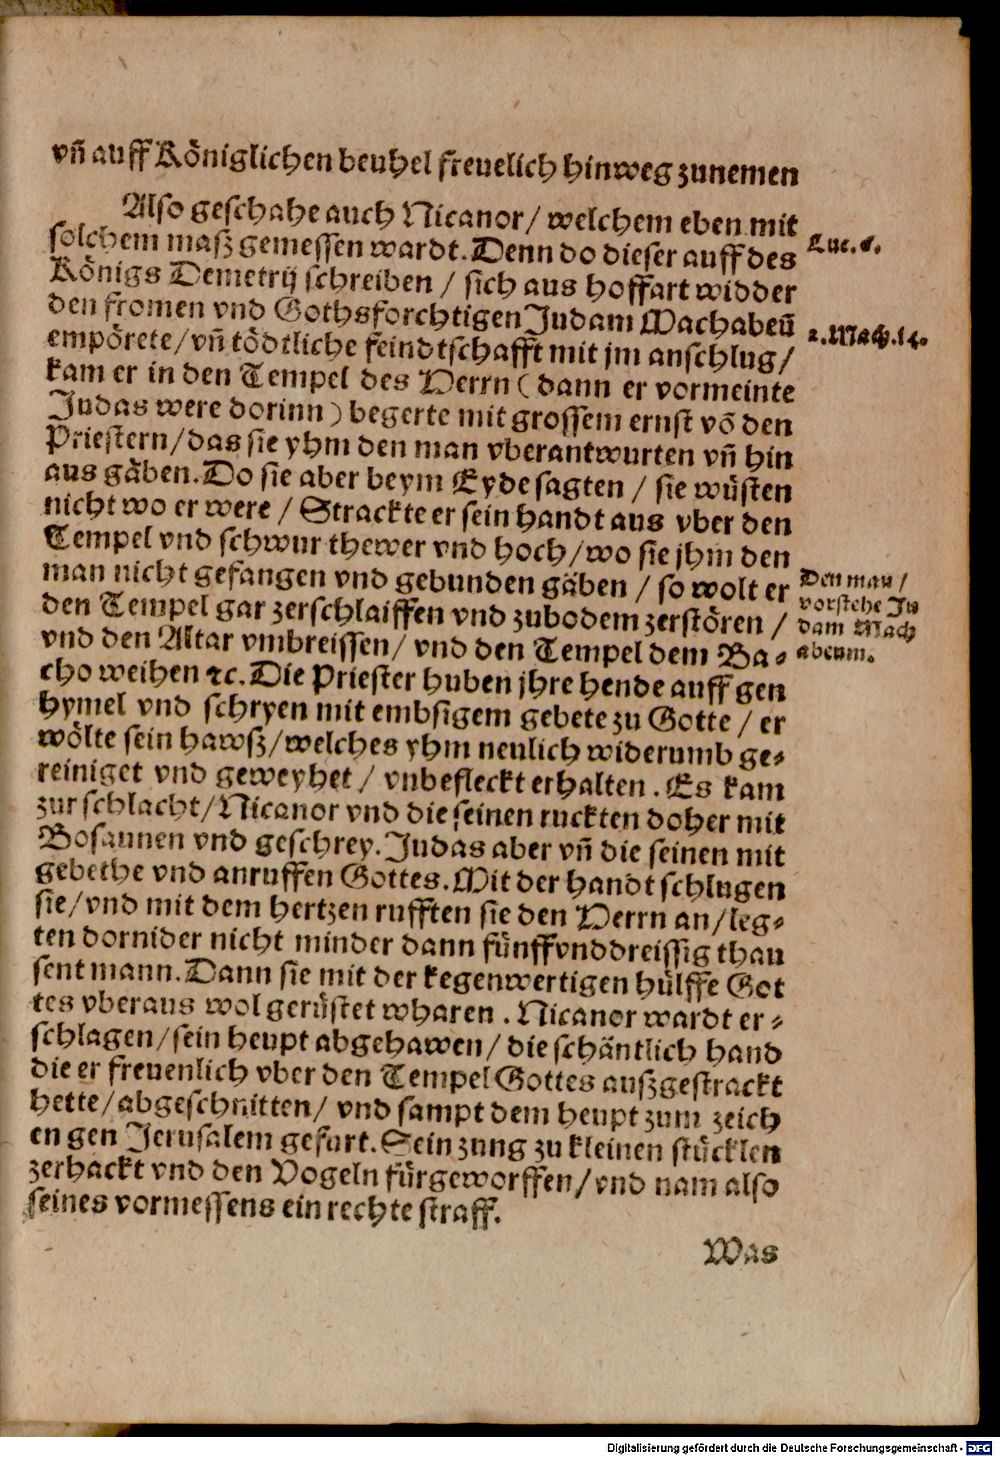 vn̄ auff Königlichen beuhel freuelich hinweg zunemen
Also geschahe auch Nicanor/ welchem eben mit
solchem masz gemessen wardt. Denn do dieser auff des
Luc. 6.
Königs Demetrij schreiben / sich aus hoffart widder
den fromen vnd Gothsforchtigen Judam Machabeū
2. Mach. 14.
empörete/ vn̄ tödtliche feindtschafft mit jm anschlug/
kam er in den Tempel des Herrn ( dann er vormeinte
Judas were dorinn ) begerte mit grossem ernst vō den
Priestern/ das sie yhm den man vberantwurten vn̄ hin
aus gäben. Do sie aber beym Eyde sagten / sie wüsten
nicht wo er were / Strackte er sein handt aus vber den
Tempel vnd schwur thewer vnd hoch/ wo sie jhm den
man nicht gefangen vnd gebunden gäben / so wolt er
Den man /
vorstehe Ju
dam Mach
abeum.
den Tempel gar zerschlaiffen vnd zubodem zerstören /
vnd den Altar vmbreissen/ vnd den Tempel dem Ba⸗
cho weihen ꝛc. Die Priester huben jhre hende auff gen
hymel vnd schryen mit embsigem gebete zu Gotte / er
wölte sein hawsz/ welches yhm neulich widerumb ge⸗
reiniget vnd geweyhet / vnbefleckt erhalten . Es kam
zur schlacht/ Nicanor vnd die seinen ruckten doher mit
Bosaunen vnd geschrey. Judas aber vn̄ die seinen mit
gebethe vnd anruffen Gottes. Mit der handt schlugen
sie/ vnd mit dem hertzen rufften sie den Herrn an/ leg⸗
ten dornider nicht minder dann fünffvnddreissig thau
sent mann. Dann sie mit der kegenwertigen hülffe Got
tes vberaus wol gerüstet wharen . Nicanor wardt er⸗
schlagen/ sein heupt abgehawen/ die schäntlich hand
die er freuenlich vber den Tempel Gottes auszgestrackt
hette/ abgeschnitten/ vnd sampt dem heupt zum zeich
en gen Jerusalem gefurt. Sein zung zu kleinen stücklen
zerhackt vnd den Vogeln fürgeworffen/ vnd nam also
seines vormessens ein rechte straff.
Was
Digitalisierung gefördert durch die Deutsche Forschungsgemeinschaft - DFG